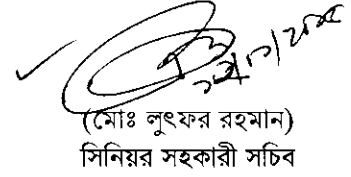 (মোঃ লুৎফর রহমান)
সিনিয়র সহকারী সচিব